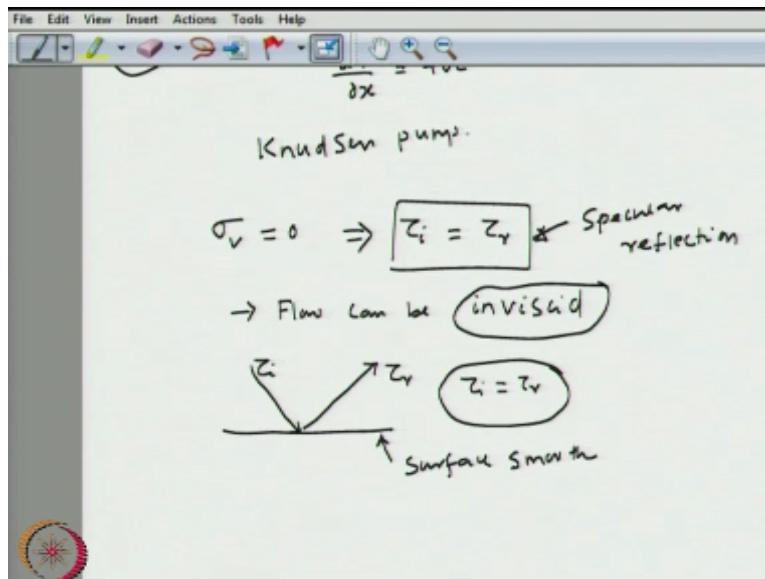 File Edit View Insert Actions Tools Help
∂x
Knudsen pump.
σᵥ = 0 ⇒ τᵢ = τᵣ Specular
reflection
→ Flow can be inviscid
τᵢ τᵣ τᵢ = τᵣ
Surface smooth